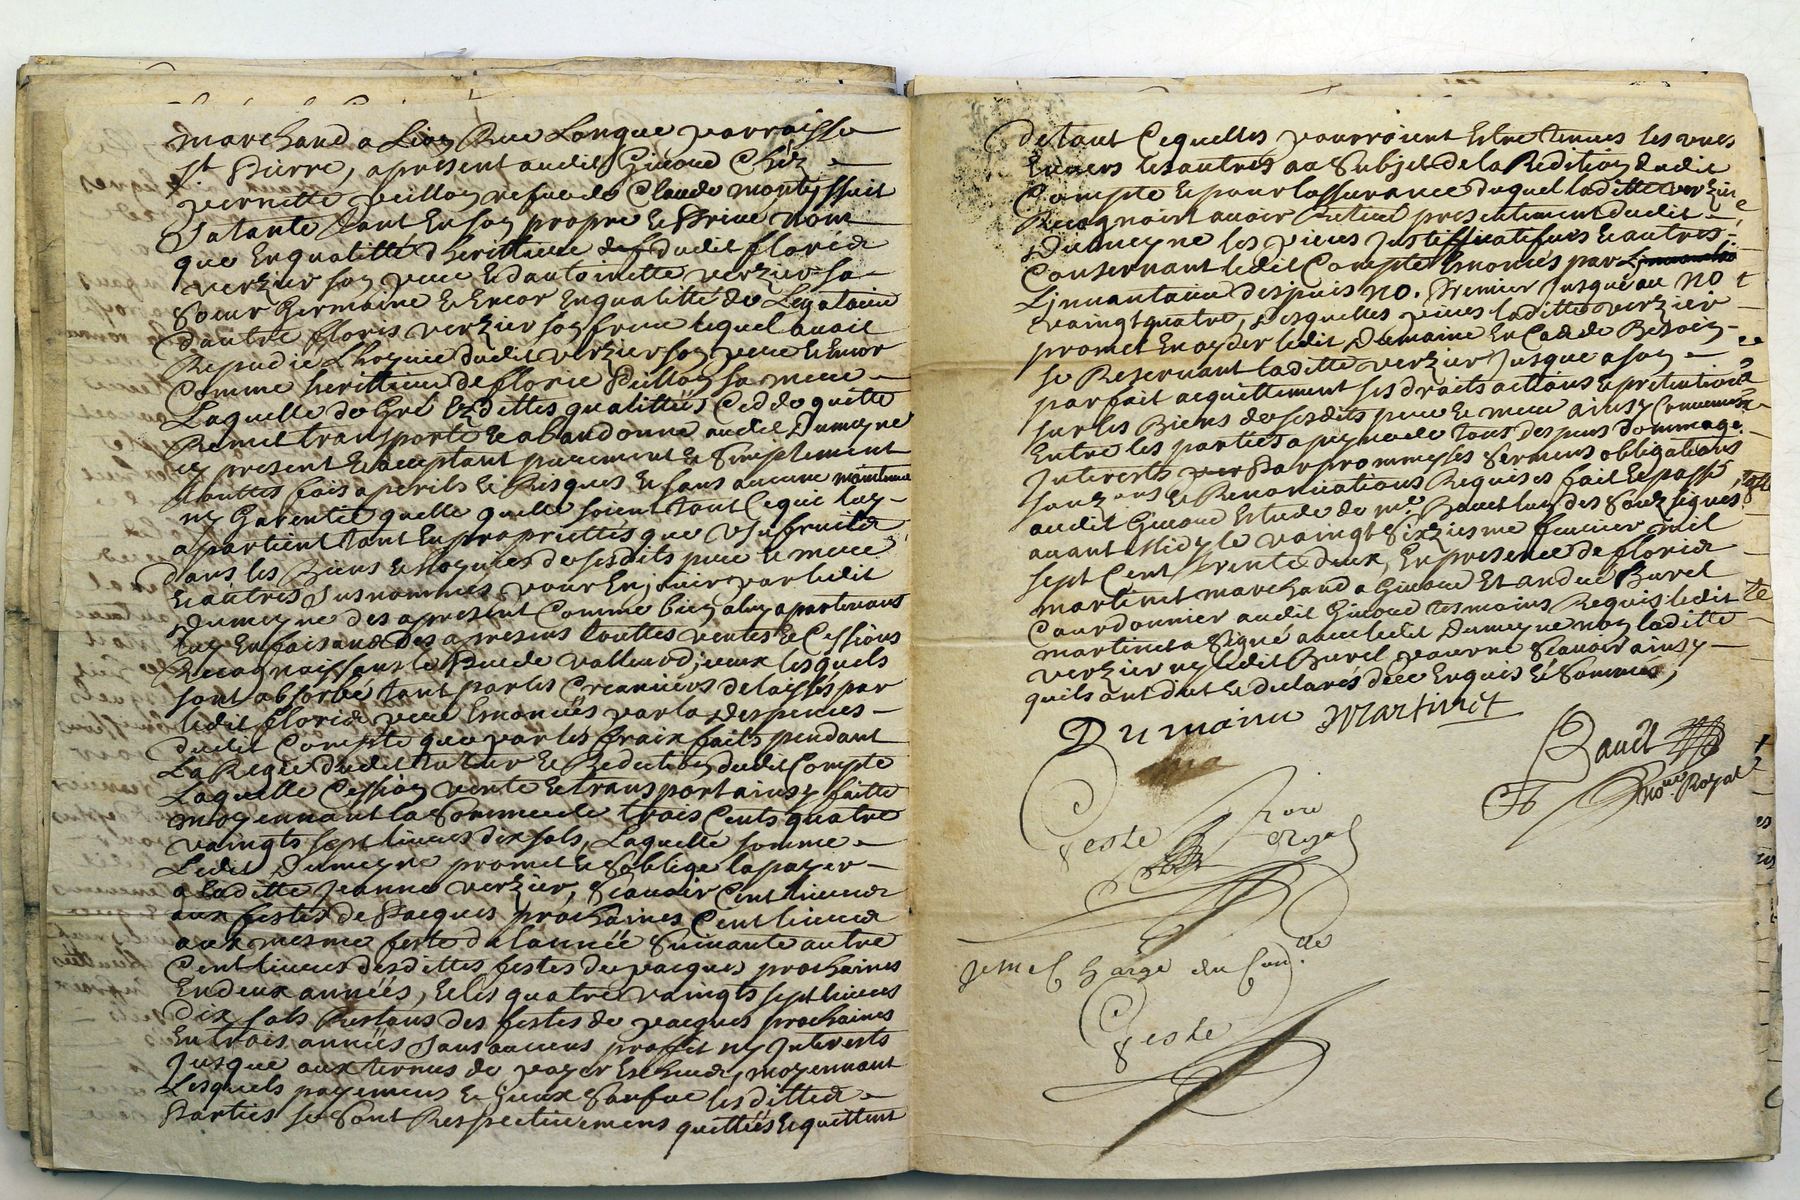 marchand a Lion Rue Longue parroisse
st Pierre, apresent audit Giuoud Chéz
pernette peillon vefue de Claude montessuit
Sa tante tant En son propre & Priué nom
que En qualitté d'herittiere dudit floris
verzier son pere Et dantoinette verzier sa
Soeur Germaine & Encor En qualitté de Legataire
dautre floris verzier son frere lequel auoit
Repudié L'hoyrie dudit verzier son pere & Encor
Comme herittiere de florie Peillon sa mere
Laquelle de Gré Ezdittes qualittés Cedde quitte
Remet transporte & abandonne audit Dumeyne
icy present & aceptant purement & Simplement
touttes fois a perils & Risques & sans aucune maintenue
ny Garentie quelle quelle soient tout Ceque luy
apartient tant En proprietté que Usufruits
dans les Biens & hoyries de sesdits pere & mere
& autres Susnommés pour En jouir par ledit
Dumeyne des apresent Comme bien aluy apartenant
luy En faisant des apresens touttes ventes & Cessions
Recognoissant le Peu de valleur d'iceux lesquels
sont absorbé tant par les Creanciers delaissés par
ledit floris pere Enoncés par la despences
dudit Compte que par les fraix faits pendant
La Regie dudit tuteur & Reddition dudit Compte
Laquelle Cession vente & transport ainsy faitte
moyennant la Somme de trois Cents quatre
vaingts sept liures dix sols, Laquelle somme
Ledit Dumeyne promet & Soblige la payer
a laditte Jeanne verzier, Scauoir Cent liures
aux festes de Pacques prochaines Cent liures
aux mesme feste de lannée Suiuante autre
Cent liures desdittes festes de pacques prochaines
En deux années, & les quatre vaingts sept liures
dix sols Restans des festes de pacques prochaines
En trois années Sans aucuns proffit ny Interests
Jusque aux termes de payer Escheus, moyennant
Lesquels payemens & Ceux Sauf que lesdittes
Parties se Sont Respectiuement quittées & quittent
de tout Cequelles pourroient Estre tenues les unes
Enuers les autres au Subjet de la Reddition dudit
Compte & pour lassurance duquel laditte verzier
Recognoit auoir Retiré presentement dudit
Dumeyne les pieces Justifficatifues & autres
Consernant ledit Compte Enoncés par
Linuantaire despuis no. Premier Jusque au no
vaingt quatre, desquelles pieces laditte verzier
promet En ayder ledit Dumaine En Cas de Besoin
se Reseruant laditte verzier Jusque a son
parfait acquittement ses droits actions & pretentions
sur les Biens de sesdits pere & mere ainsy Conuenus
Entre les parties a peyne de tous despens dommage
Interests par prommesses Sermens obligations
& Renonciations Requises fait & passé
audit Giuoud Estude de me. Bauet lun des Souzsignes
auant Midy le vaingt Sixiesme feurier mil
sept Cent trente deux, En presence de floris
martinet marchand a Giuoud Et andré Burel
Courdonnier audit Giuoud tesmoins Requis ledit
martinet a Signé auec ledit Dumeyne non laditte
verzier ny ledit Burel pour ne Scauoir ainsy
quils ont dit & declarés de ce Enquis & Sommés,
Dumainne Martinet
Bauet
nore. Royal
Geste
nore
Royal
Je me Charge du Con.
Geste